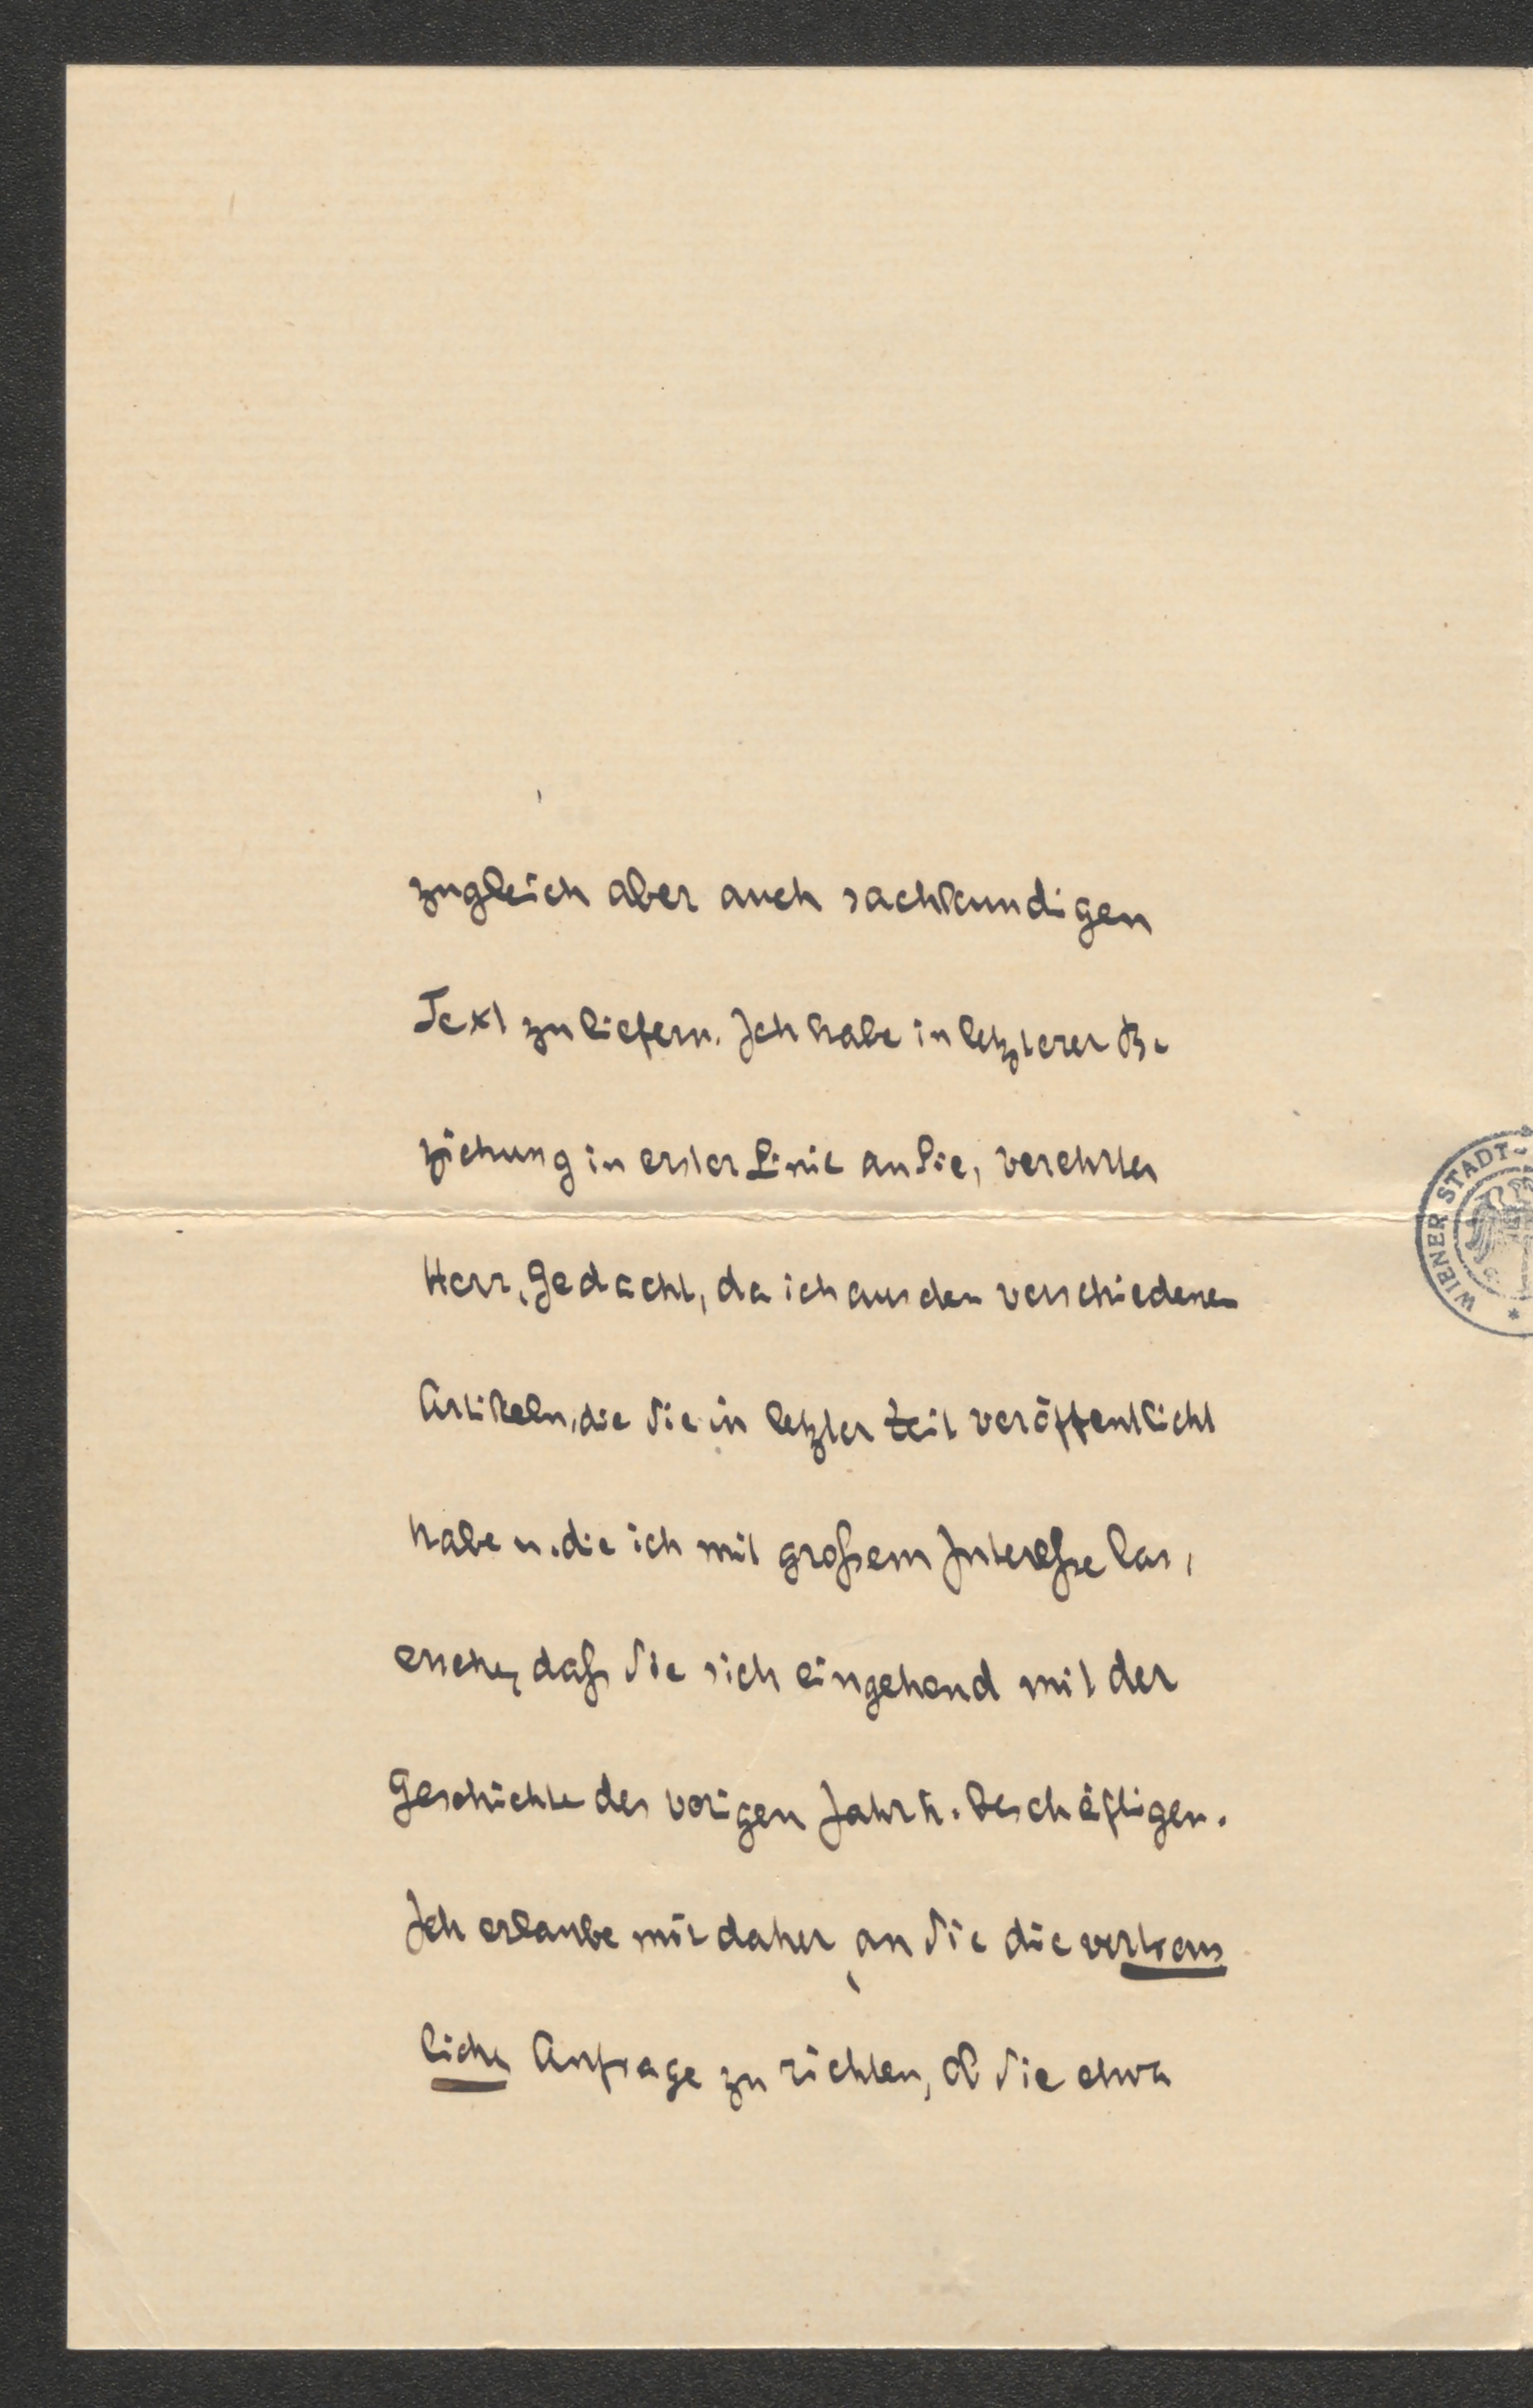 zugleich aber auch sachkundigen
Text zu liefern. Ich habe in letzterer Be
ziehung in erster Linie an Sie, verehrter
Herr, gedacht, da ich aus den verschiedenen
Artikeln, die Sie in letzter Zeit veröffentlicht
habe u. die ich mit großem Interesse las,
ersehe, daß Sie sich eingehend mit der
Geschichte des vorigen Jahrh. beschäftigen.
Ich erlaube mir daher an Sie die vertrau
liche Anfrage zu richten, ob Sie etwa
WIENER STADT-